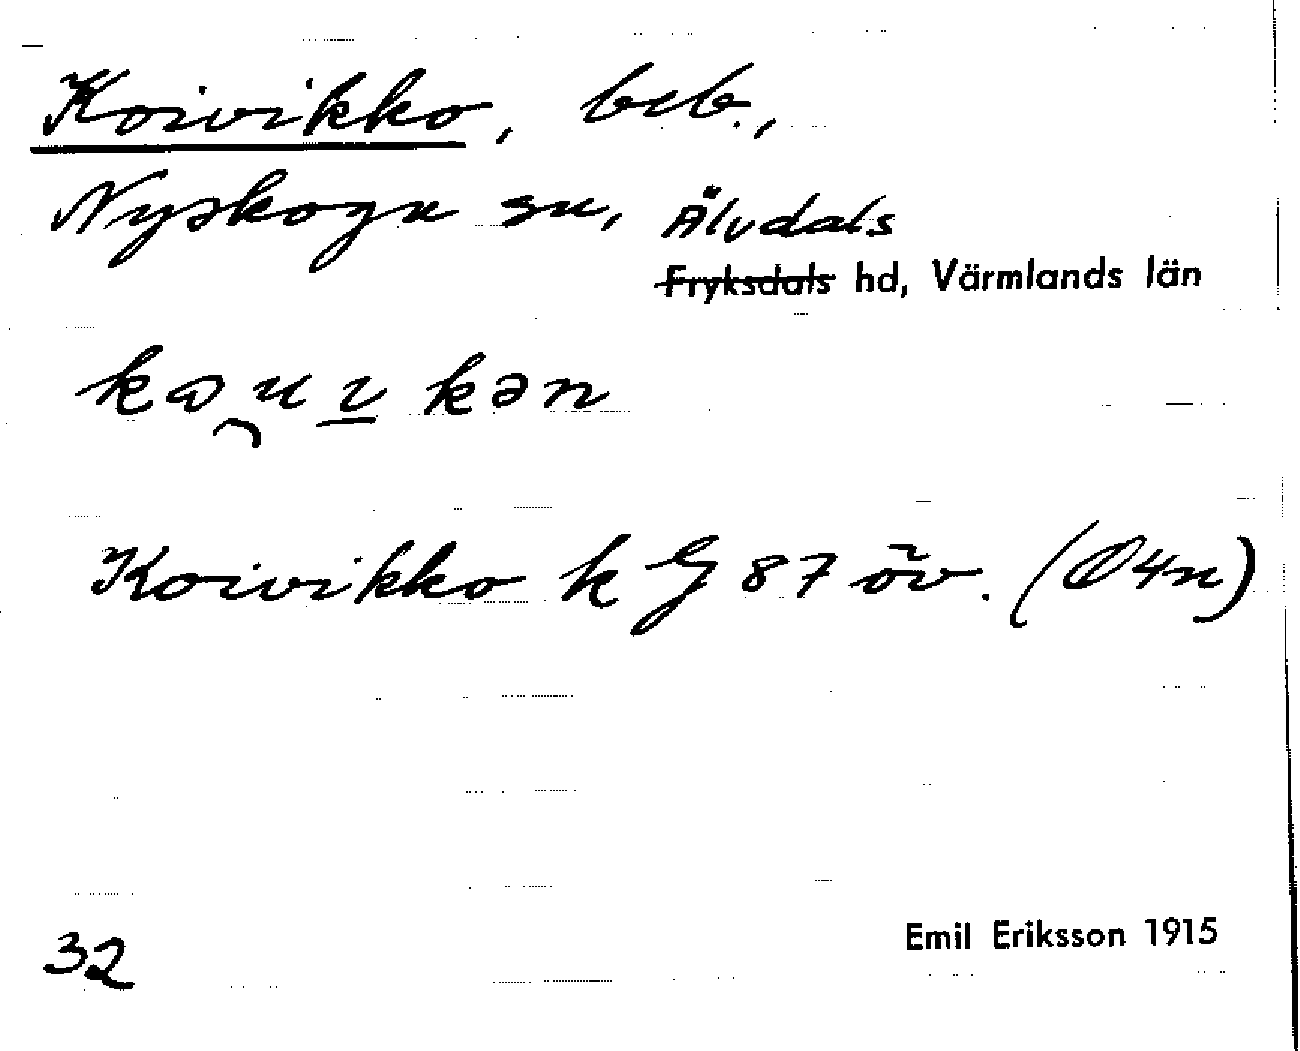 Koivikko, beb.,
Nyskoga sn, Älvdals
Fryksdals hd, Värmlands län
Koivikko k G 87 öv. (Ø4n)
32
Emil Eriksson 1915